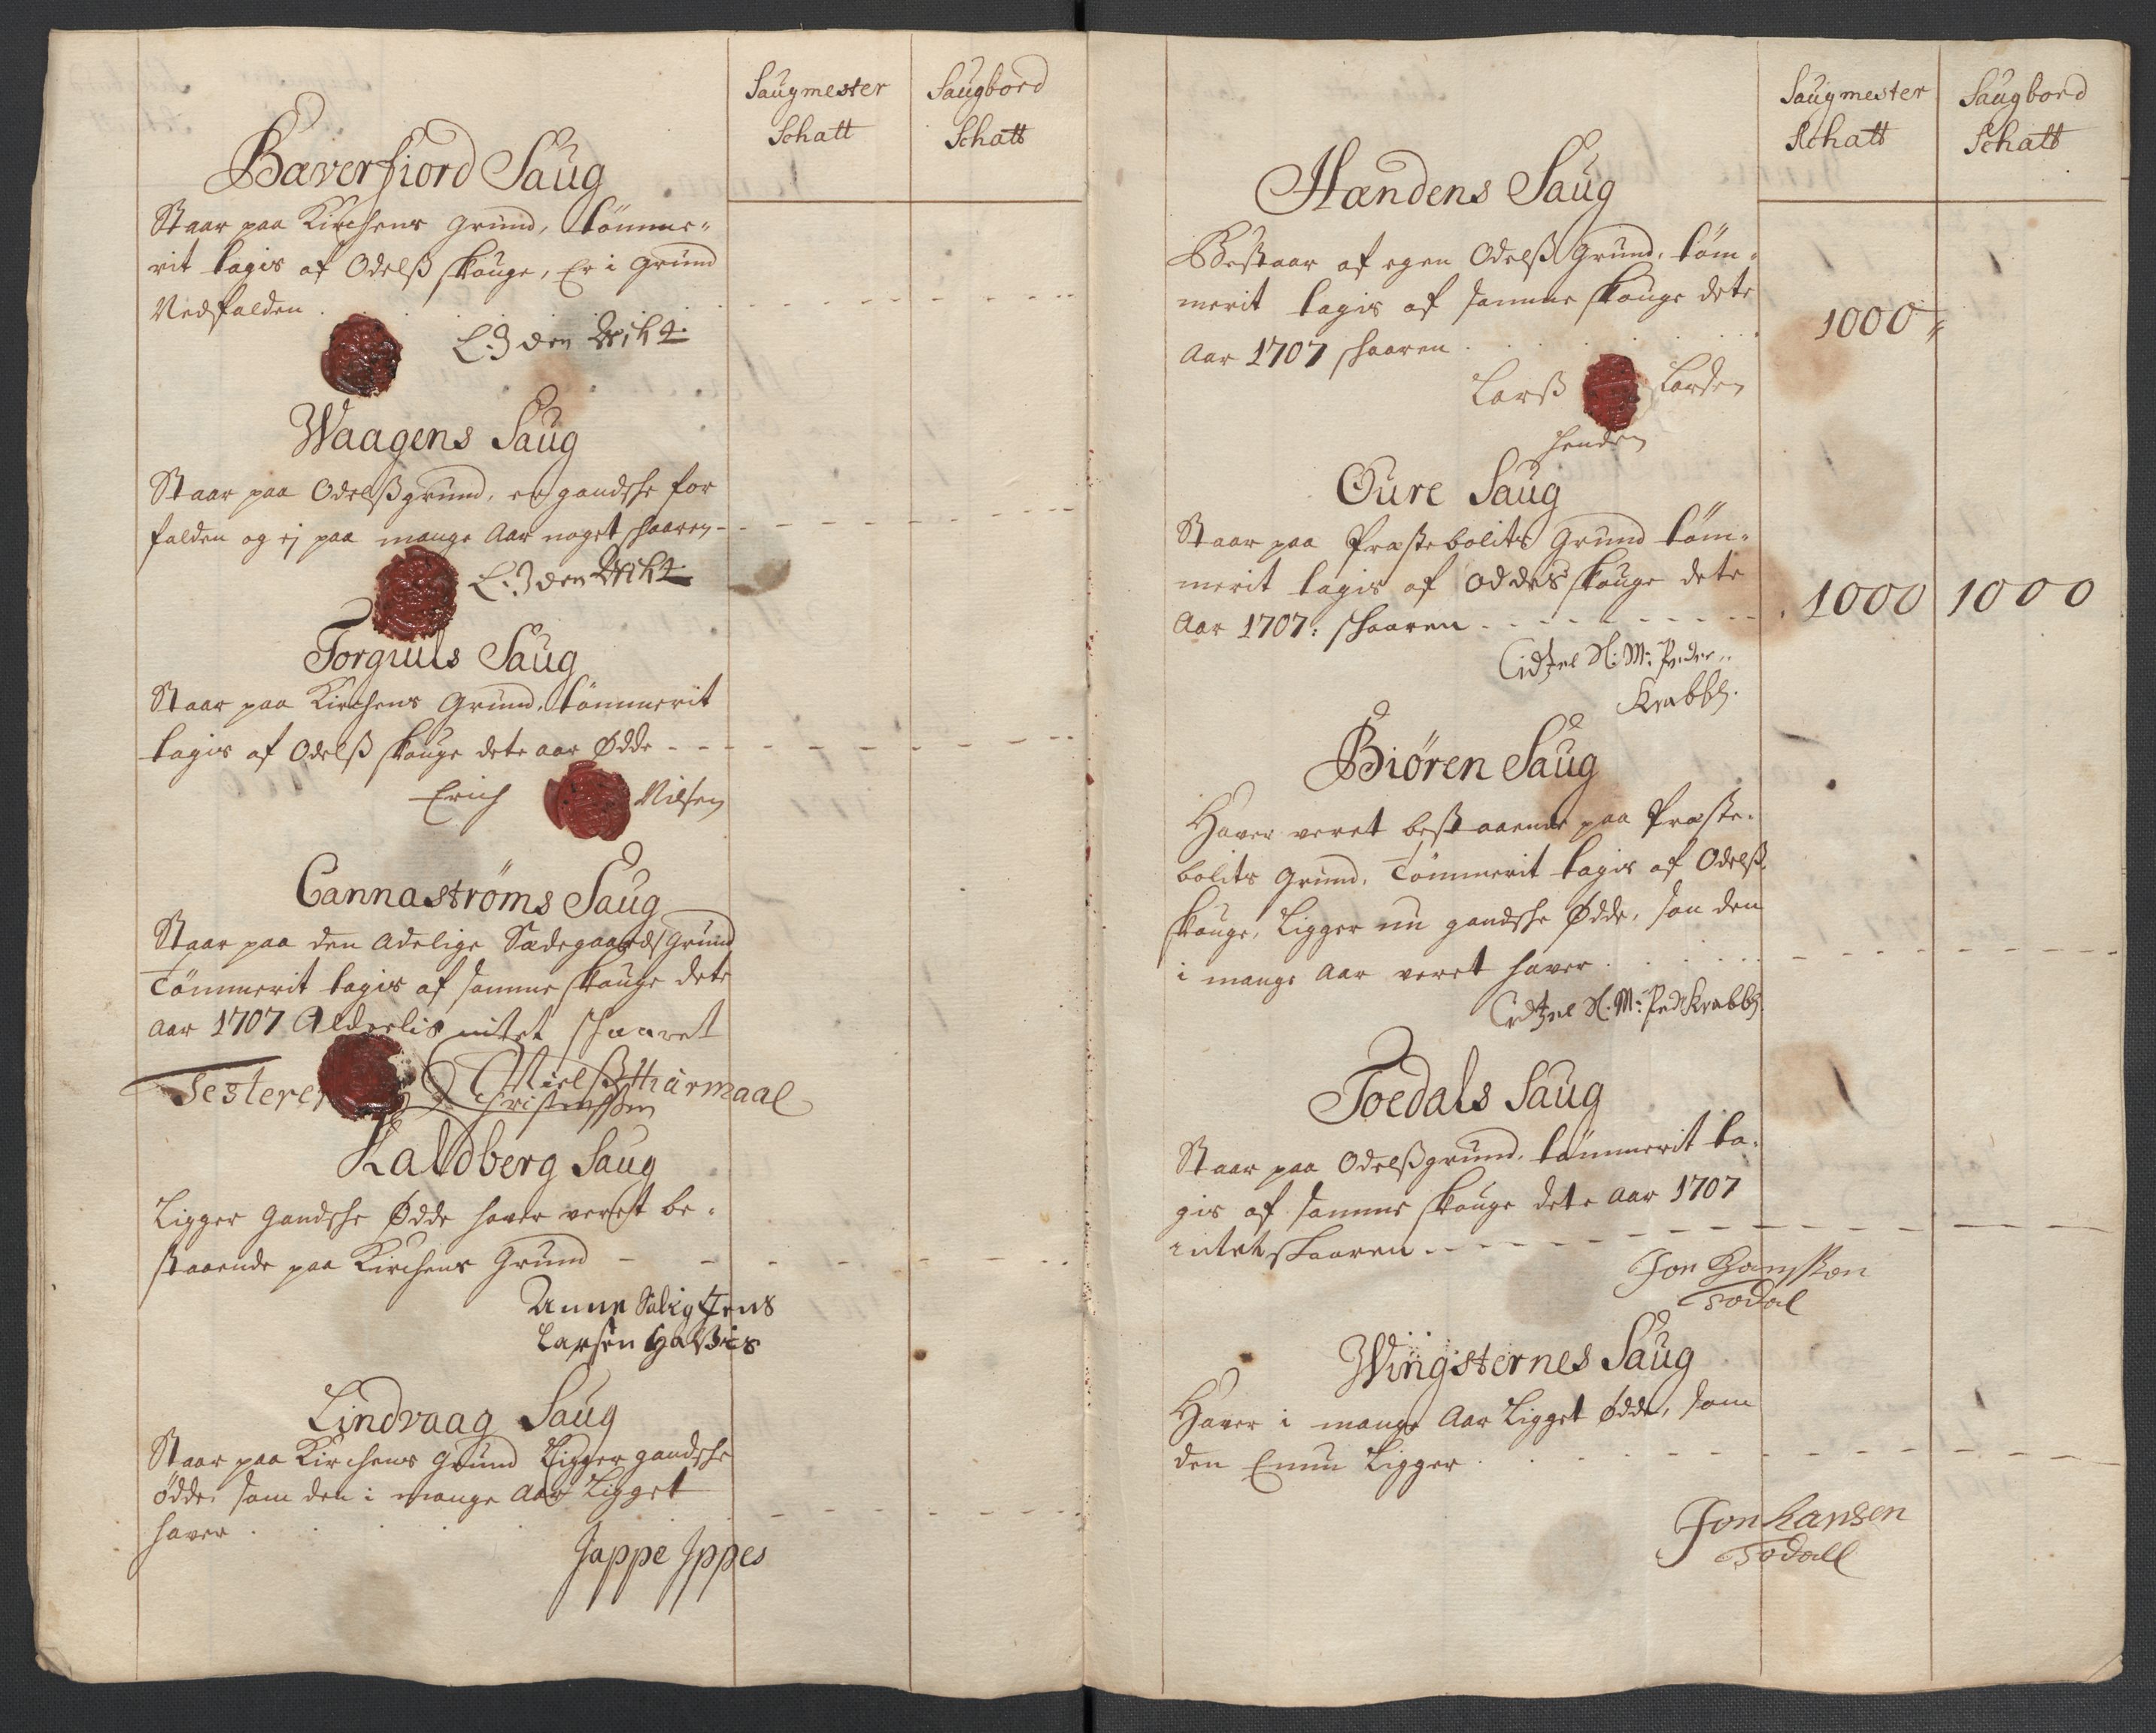 Saugmester Saugbord
Schatt Schatt
Bæverfiord Saug
Staar paa Kirchens grund, tömme-
rit tagis af Odelß skouge, Er i grund
Nedfalden
Waagens Saug
Staar paa Odelßgrund, er gandshe for
falden og ej paa mange Aar noget skaaren
Torguuls Saug
Staar paa Kirchens Grund, tömmerit
tagis af Odelß skouge dete aar Ødde
Erich Nilsen
Cannaströms Saug
Staar paa den Adelige Sædegaards Grund
Tömmerit tagis af samme skouge dete
Aar 1707 Alderlis intet skaaret
Testerer Nielß Thärmaal
Christenssen
Kaldberg Saug
Ligger Gandshe Ødde haver veret be-
staaende paa Kirchens Grund
Anne Salig Jens
Larsen Halßes
Lindvaag Saug
Staar paa Kirchens Grund Ligger gandshe
ödde, som den i mange Aar Ligget
haver
Jappe Ippes
Saugmester Saugbord
Schatt Schatt
Hændens Saug
Bestaar af egen Odelß Grund, töm-
merit tagis af samme skouge dete
Aar 1707 skaaren 1000
Larß Larsen
henden
Oure Saug
Staar paa Præstebolits Grund töm-
merit tagis af Oddels skouge dete
Aar 1707: skaaren 1000 1000
Cidtzel Sl: Mr: Peder
Krabbes.
Biören Saug
Haver veret bestaaende paa Præste-
bolits Grund, Tömmerit tagis af Odelß
skouge, Ligger nu gandshe Ødde, saa den
i mange Aar veret haver
Cidtzel Sl. Mr: Ped Krabbes.
Toedals Saug
Staar paa Odelßgrund, tömmerit ta-
gis af samme skouge dete Aar 1707
intet skaaren
Jon Hansson
Todal
Wingsternes Saug
Haver i mange Aar Ligget ödde, som
den Ennu Ligger
Jon Hansen
Todall